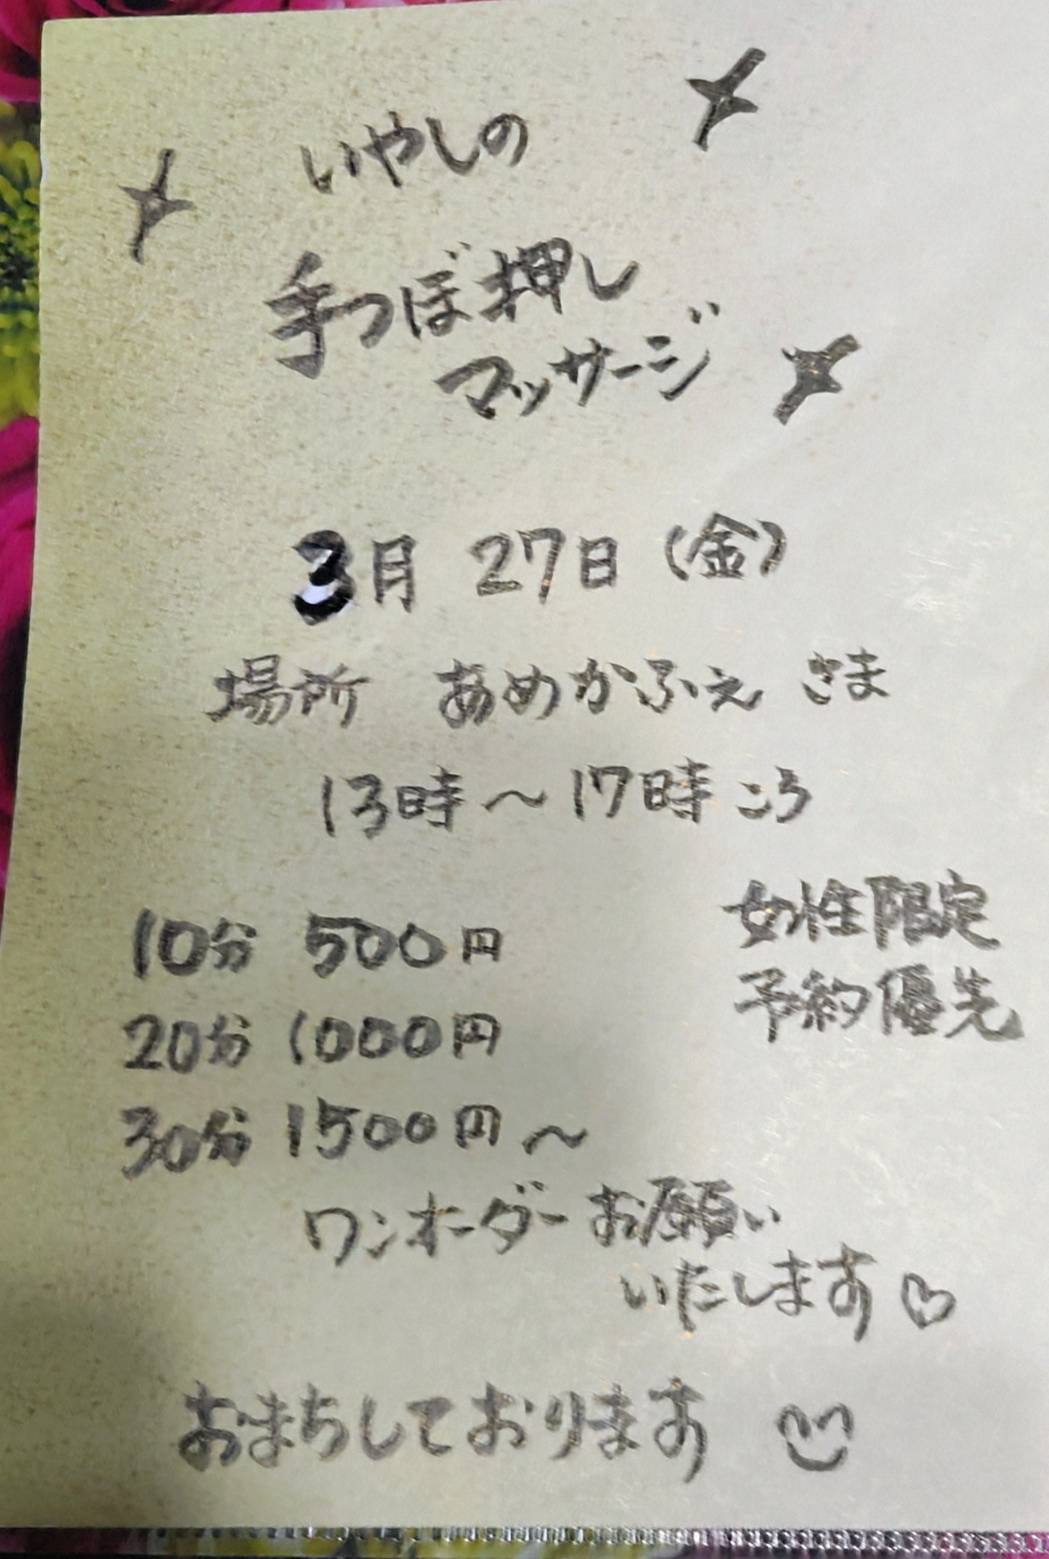 いやしの
手つぼ押し
マッサージ
3月 27日 (金)
場所 あめかふぇ さま
13時〜17時 ころ
女性限定
予約優先
10分 500円
20分 1000円
30分 1500円〜
ワンオーダーお願い
いたします♡
おまちしております